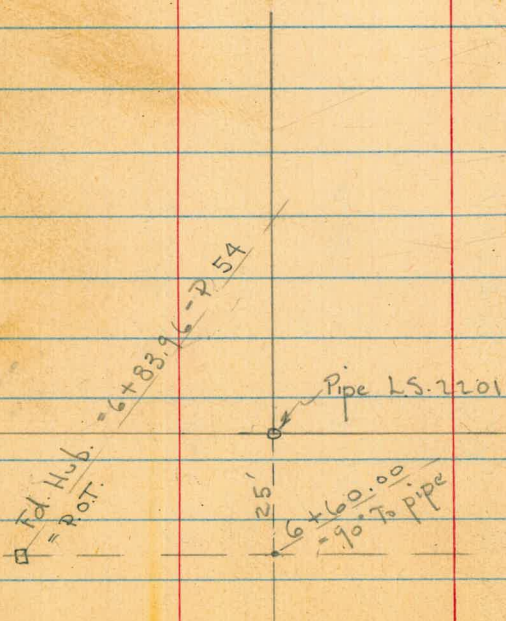 Fd. Hub. = 6+83.96 - P. 54
= P.O.T.
Pipe LS. 2201
25'
6+60.00
= 90° To pipe